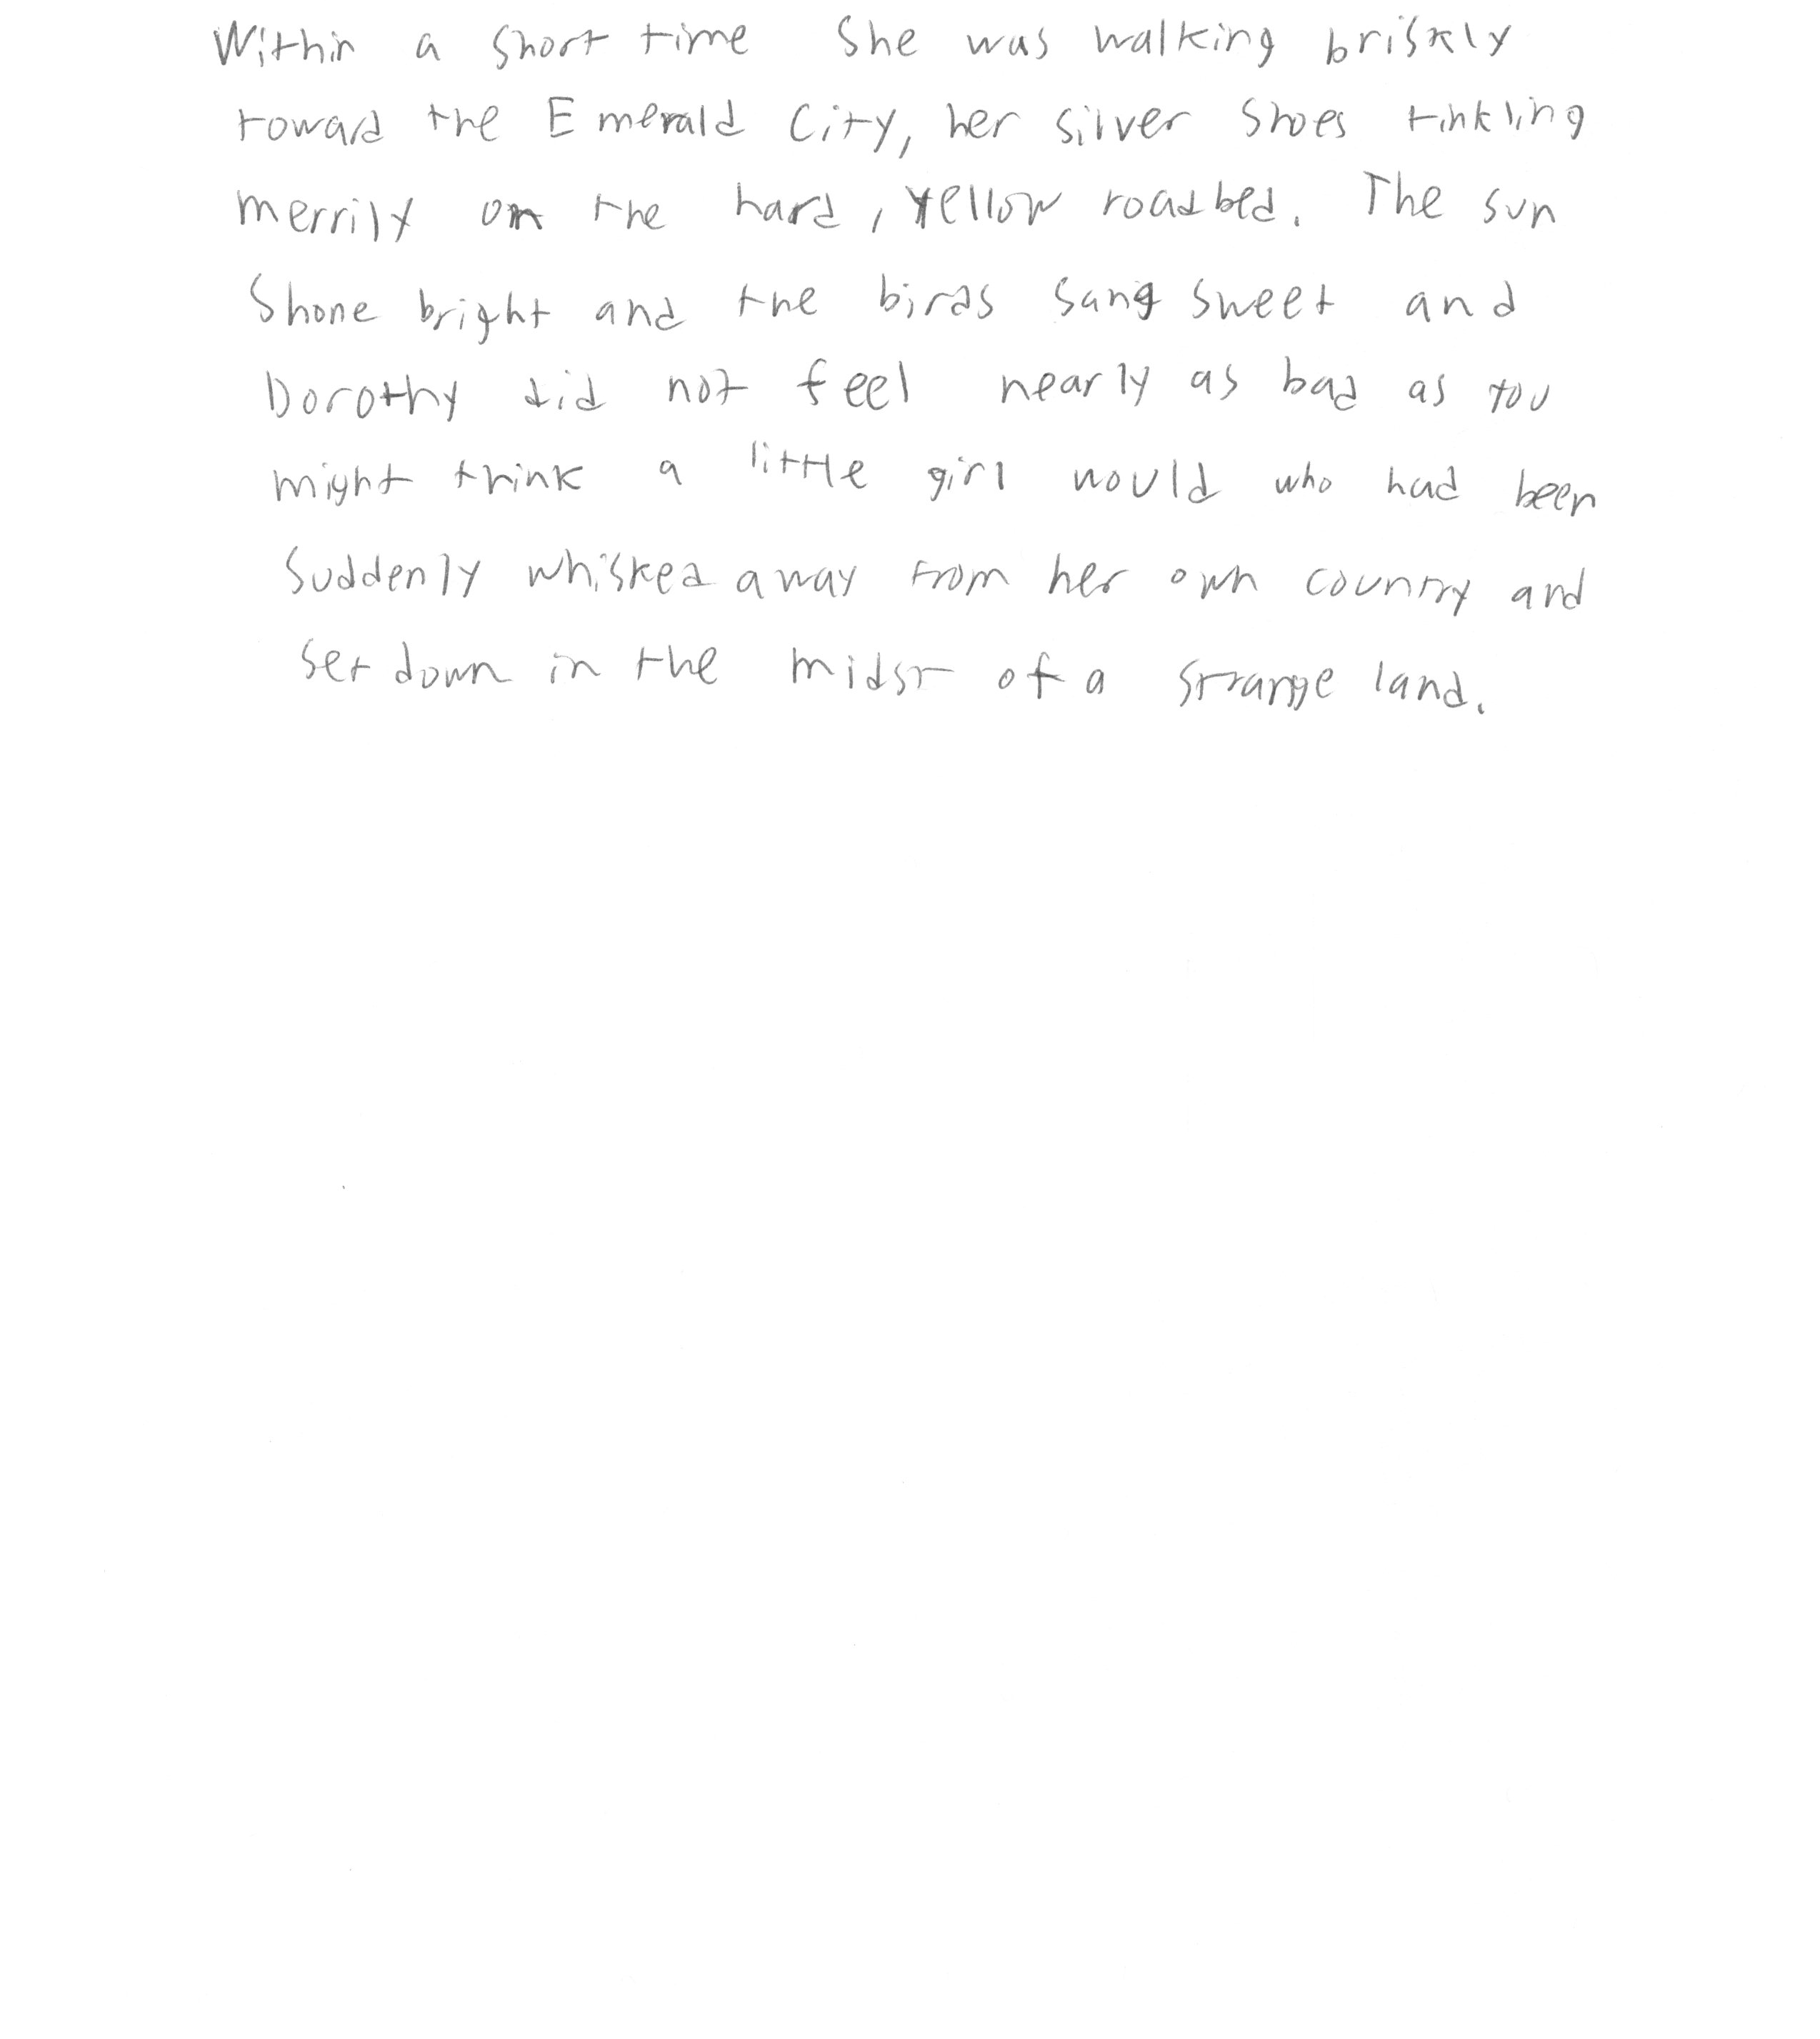 Within a short time she was walking briskly
toward the Emerald City, her silver shoes tinkling
merrily on the hard, yellow roadbed. The sun
shone bright and the birds sang sweet and
Dorothy did not feel nearly as bad as you
might think a little girl would who had been
suddenly whisked away from her own country and
set down in the midst of a strange land.